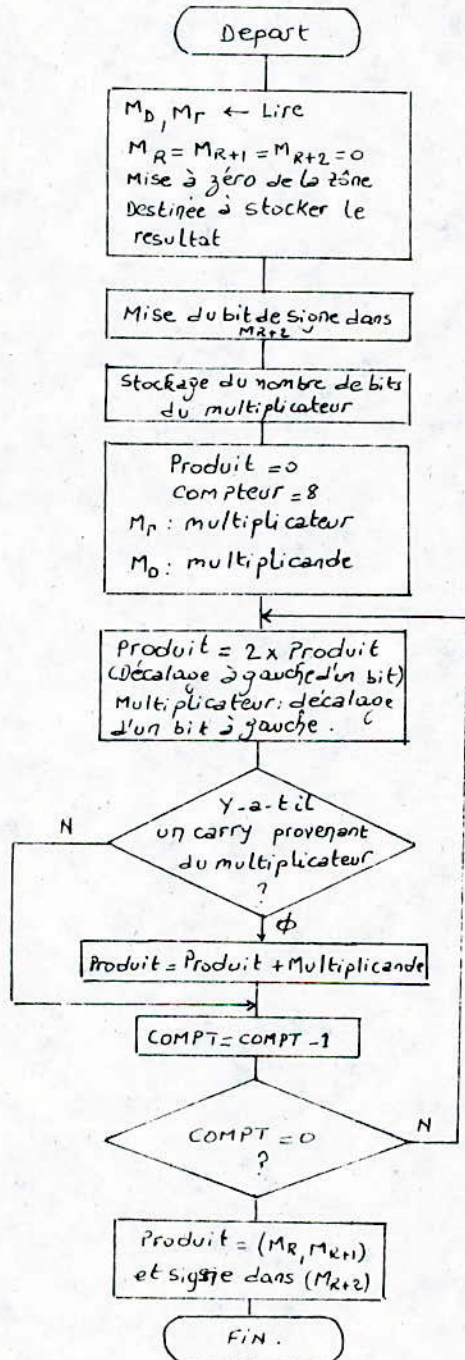 Depart
M_D, M_r ← Lire
M_R = M_R+1 = M_R+2 = 0
Mise à zéro de la zône
Destinée à stocker le
resultat
Mise du bit de signe dans
M_R+2
Stockage du nombre de bits
du multiplicateur
Produit = 0
Compteur = 8
M_r : multiplicateur
M_D : multiplicande
Produit = 2 x Produit
(Décalage à gauche d'un bit)
Multiplicateur : décalage
d'un bit à gauche .
Y-a-t il
N
un carry provenant
du multiplicateur
?
φ
Produit = Produit + Multiplicande
COMPT = COMPT - 1
N
COMPT = 0
?
Produit = (M_R, M_R+1)
et signe dans (M_R+2)
FIN .